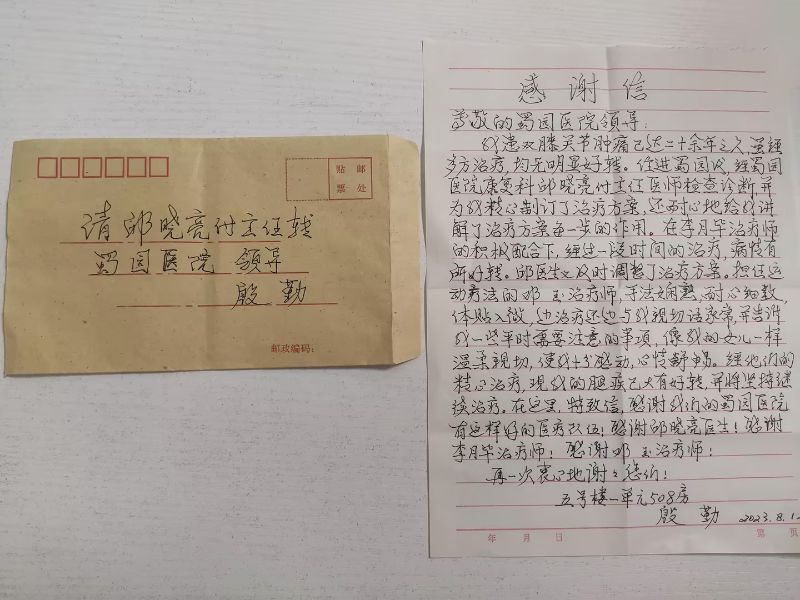 贴 邮
票 处
请邱晓亮付主任转
蜀园医院 领导
殷 勤
邮政编码：
感 谢 信
尊敬的蜀园医院领导：
我患双膝关节肿痛已达二十余年之久，虽经
多方治疗，均无明显好转。住进蜀园后，经蜀园
医院康复科邱晓亮付主任医师检查诊断，并
为我精心制订了治疗方案，还耐心地给我讲
解了治疗方案每一步的作用。在李月华治疗师
的积极配合下，经过一段时间的治疗，病情有
所好转。邱医生又及时调整了治疗方案。担任运
动疗法的邓 玉治疗师，手法娴熟，耐心细致，
体贴入微，边治疗还边与我亲切话家常，并告诉
我一些平时需要注意的事项，像我的女儿一样
温柔亲切，使我十分感动，心情舒畅。经他们的
精心治疗，现我的腿疾已大有好转，并将坚持继
续治疗。在这里，特致信，感谢我们的蜀园医院
有这样好的医疗队伍！感谢邱晓亮医生！感谢
李月华治疗师！感谢邓 玉治疗师！
再一次衷心地谢谢您们！
五号楼一单元508房
殷 勤 2023.8.1
年 月 日
第 页